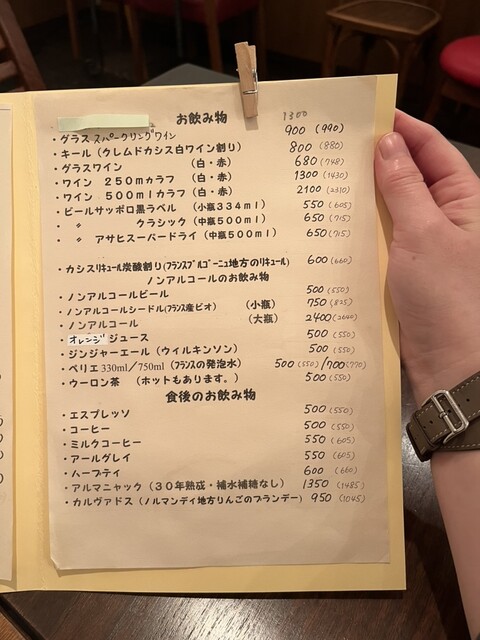 お飲み物 1300
・グラス スパークリングワイン 900 (990)
・キール（クレムドカシス白ワイン割り） 800 (880)
・グラスワイン （白・赤） 680 (748)
・ワイン 250mカラフ （白・赤） 1300 (1430)
・ワイン 500mlカラフ （白・赤） 2100 (2310)
・ビールサッポロ黒ラベル （小瓶334ml） 550 (605)
・ 〃 クラシック（中瓶500ml） 650 (715)
・ 〃 アサヒスーパードライ（中瓶500ml） 650 (715)
・カシスリキュール炭酸割り(フランスブルゴーニュ地方のリキュール) 600 (660)
ノンアルコールのお飲み物
・ノンアルコールビール 500 (550)
・ノンアルコールシードル(フランス産ビオ) （小瓶） 750 (825)
・ノンアルコール （大瓶） 2400 (2640)
・オレンジジュース 500 (550)
・ジンジャーエール（ウィルキンソン） 500 (550)
・ペリエ330ml／750ml（フランスの発泡水） 500 (550) /700 (770)
・ウーロン茶 （ホットもあります。） 500 (550)
食後のお飲み物
・エスプレッソ 500 (550)
・コーヒー 500 (550)
・ミルクコーヒー 550 (605)
・アールグレイ 550 (605)
・ハーブティ 600 (660)
・アルマニャック（３０年熟成・補水補糖なし） 1350 (1485)
・カルヴァドス（ノルマンディ地方りんごのブランデー） 950 (1045)